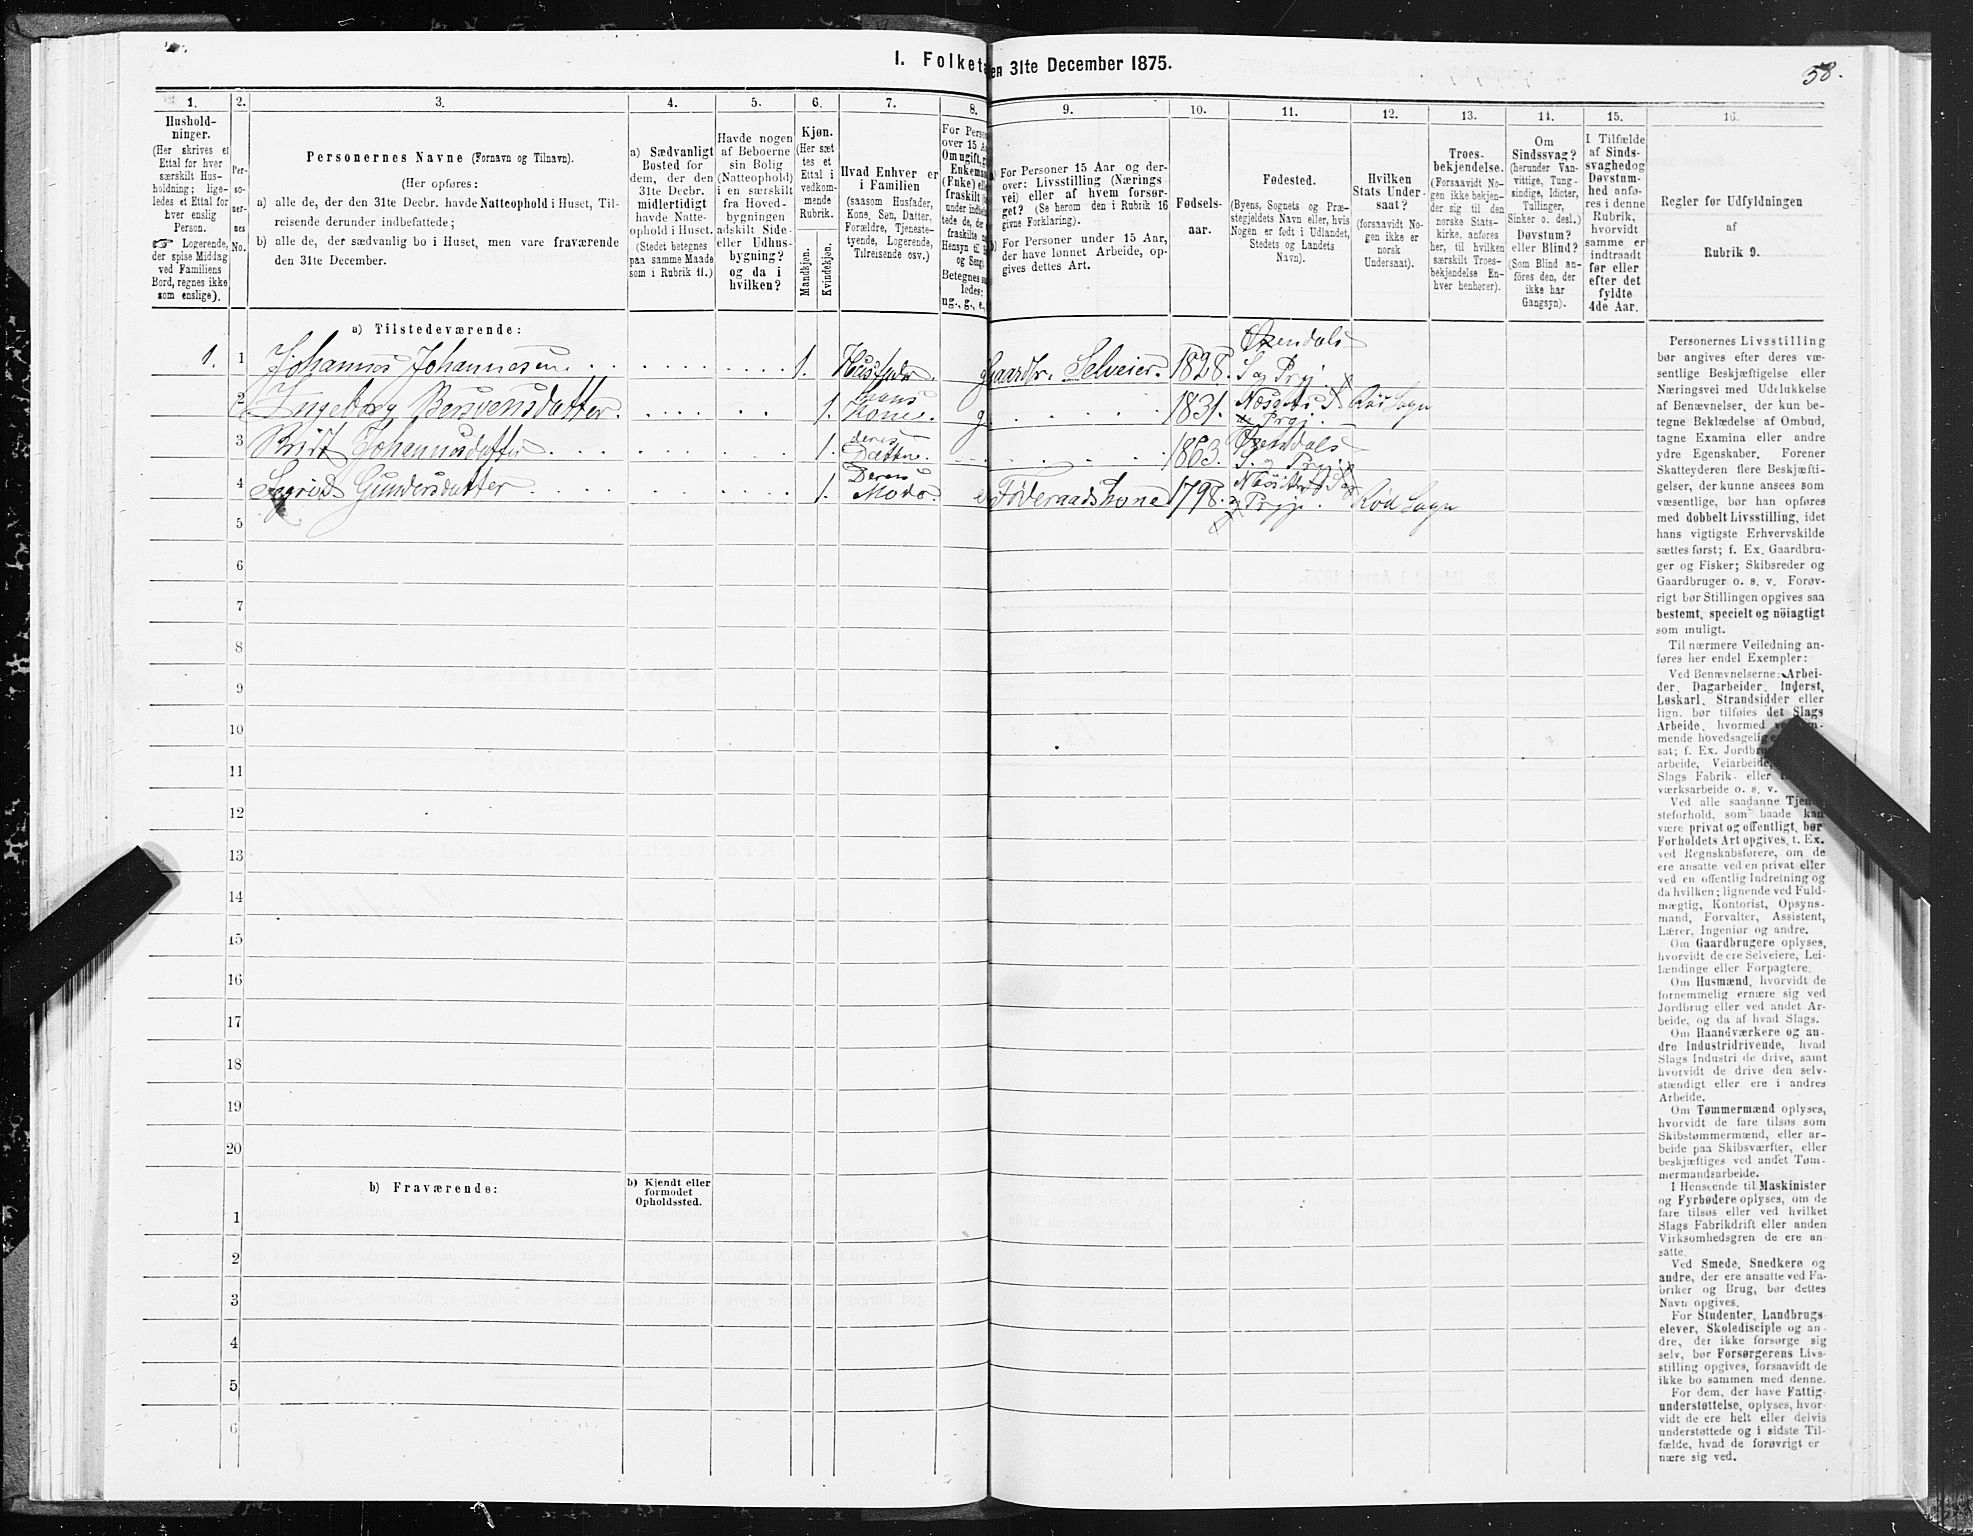 I. Folketæ
en 31te December 1875.
58.
1.
2.
3.
4.
5.
6.
7.
8.
9.
10.
11.
12.
13.
14.
15.
16.
Hushold-
ninger.
(Her skrives et
Ettal for hver
særskilt Hus-
holdning; lige-
ledes et Ettal for
hver enslig
Person.
☞ Logerende,
der spise Middag
ved Familiens
Bord, regnes ikke
som enslige).
Per-
so-
ner-
nes
No.
Personernes Navne (Fornavn og Tilnavn).
(Her opføres:
a) alle de, der den 31te Decbr. havde Natteophold i Huset, Til-
reisende derunder indbefattede;
b) alle de, der sædvanlig bo i Huset, men vare fraværende
den 31te December.
a) Sædvanligt
Bosted for
dem, der den
31te Decbr.
midlertidigt
havde Natte-
ophold i Huset.
(Stedet betegnes
paa samme Maade
som i Rubrik 11.)
Havde nogen
af Beboerne
sin Bolig
(Natteophold)
i en særskilt
fra Hoved-
bygningen
adskilt Side-
eller Udhus-
bygning?
og da i
hvilken?
Kjøn.
(Her sæt-
tes et
Ettal i
vedkom-
mende
Rubrik.
Mandkjøn.
Kvindekjøn.
Hvad Enhver er
i Familien
(saasom Husfader,
Kone, Søn, Datter,
Forældre, Tjeneste-
tyende, Logerende,
Tilreisende osv.)
For Perso
over 15 A
Om ugift, g
Enkema
(Enke) ell
fraskilt
under indbe
tede de, de
fraskilte
Hensyn til
og Seng
Betegnes sa
ledes:
ug., g., e.,
a) For Personer 15 Aar og der-
over: Livsstilling (Nærings-
vei) eller af hvem forsør-
get? (Se herom den i Rubrik 16
givne Forklaring).
b) For Personer under 15 Aar,
der have lønnet Arbeide, op-
gives dettes Art.
Fødsels-
aar.
Fødested.
(Byens, Sognets og Præ-
stegjeldets Navn eller, hvis
Nogen er født i Udlandet,
Stedets og Landets
Navn).
Hvilken
Stats Under-
saat?
(forsaavidt No-
gen ikke er
norsk
Undersaat).
Troes-
bekjendelse.
(Forsaavidt No-
gen ikke bekjen-
der sig til den
norske Stats-
kirke, anføres
her, til hvilken
særskilt Troes-
bekjendelse En-
hver henhører).
Om
Sindssvag?
(herunder Van-
vittige, Tung-
sindige, Idioter,
Tullinger,
Sinker o. desl.)
Døvstum?
eller Blind?
(Som Blind an-
føres den, der
ikke har
Gangsyn).
I Tilfælde
af Sinds-
svaghed og
Døvstum-
hed anfø-
res i denne
Rubrik,
hvorvidt
samme er
indtraadt
før eller
efter det
fyldte
4de Aar.
Regler for Udfyldningen
af
Rubrik 9.
a) Tilstedeværende:
1. 1 Johannes Johannesen 1. Husfader. g Gaardbr. Selveier. 1828. Øxendals S og Prgj.
2 Ingeborg Bersvensdatter. 1. hans Kone. g. 1831. Næssets S Prgj. Rød Sogn
3 Brit Johannesdatter 1. deres Datter. 1863. Øxendals S. og Prgj.
4 Sigrid Gundersdatter 1. Deres Moder. e Føderaadskone 1798. Prgj. Rød Sogn
5
6
7
8
9
10
11
12
13
14
15
16
17
18
19
20
b) Fraværende:
b) Kjendt eller
formodet
Opholdssted.
1
2
3
4
5
6
Personernes Livsstilling
bør angives efter deres væ-
sentlige Beskjæftigelse eller
Næringsvei med Udelukkelse
af Benævnelser, der kun be-
tegne Beklædelse af Ombud,
tagne Examina eller andre
ydre Egenskaber. Forener
Skatteyderen flere Beskjæfti-
gelser, der kunne ansees som
væsentlige, bør han opføres
med dobbelt Livsstilling, idet
hans vigtigste Erhvervskilde
sættes først; f. Ex. Gaardbru-
ger og Fisker; Skibsreder og
Gaardbruger o. s. v. Forøv-
rigt bør Stillingen opgives saa
bestemt, specielt og nöiagtigt
som muligt.
Til nærmere Veiledning an-
føres her endel Exempler:
Ved Benævnelserne: Arbei-
der, Dagarbeider, Inderst,
Løskarl, Strandsidder eller
lign. bør tilføies det Slags
Arbeide, hvormed
mende hovedsagelig
sat; f. Ex. Jordbr
arbeide, Veiarbeide,
Slags Fabrik- eller
værksarbeide o. s. v.
Ved alle saadanne Tjene-
steforhold, som baade kan
være privat og offentligt, bør
Forholdets Art opgives, t. Ex.
ved Regnskabsførere, om de
ere ansatte ved en privat eller
ved en offentlig Indretning og
da hvilken; lignende ved Fuld-
mægtig, Kontorist, Opsyns-
mand, Forvalter, Assistent,
Lærer, Ingeniør og andre.
Om Gaardbrugere oplyses,
hvorvidt de ere Selveiere, Lei-
lændinge eller Forpagtere.
Om Husmænd, hvorvidt de
fornemmelig ernære sig ved
Jordbrug eller ved andet Ar-
beide, og da af hvad Slags.
Om Haandværkere og an-
dre Industridrivende, hvad
Slags Industri de drive, samt
hvorvidt de drive den selv-
stændigt eller ere i andres
Arbeide.
Om Tømmermænd oplyses,
hvorvidt de fare tilsøs som
Skibstømmermænd, eller ar-
beide paa Skibsværfter, eller
beskjæftiges ved andet Tøm-
mermandsarbeide.
I Henseende til Maskinister
og Fyrbødere oplyses, om de
fare tilsøs eller ved hvilket
Slags Fabrikdrift eller anden
Virksomhedsgren de ere an-
satte.
Ved Smede, Snedkere og
andre, der ere ansatte ved Fa-
briker og Brug, bør dettes
Navn opgives.
For Studenter, Landbrugs-
elever, Skoledisciple og an-
dre, der ikke forsørge sig
selv, bør Forsørgerens Livs-
stilling opgives, forsaavidt de
ikke bo sammen med denne.
For dem, der have Fattig-
understøttelse, oplyses, hvor-
vidt de ere helt eller delvis
understøttede og i sidste Til-
fælde, hvad de forøvrigt er
nære sig ved.